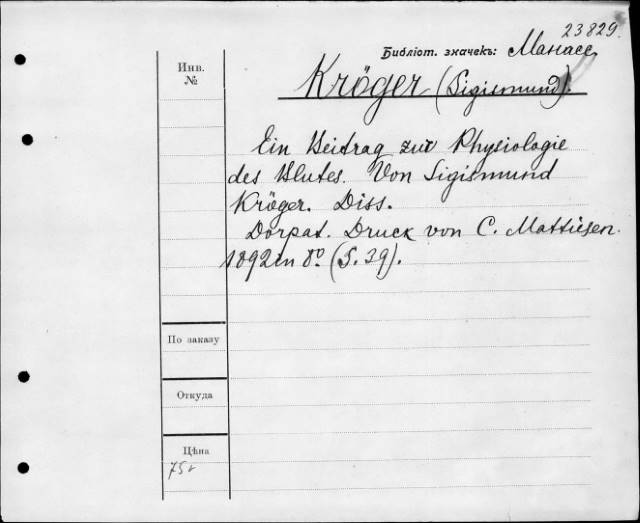 23829.
Библіот. значекъ: Манасе
Инв.
№
Kröger (Sigismund).
Ein Beitrag zur Physiologie
des Blutes. Von Sigismund
Kröger. Diss.
Dorpat. Druck von C. Mattiesen.
1892 in 8° (S. 39).
По заказу
Откуда
Цѣна